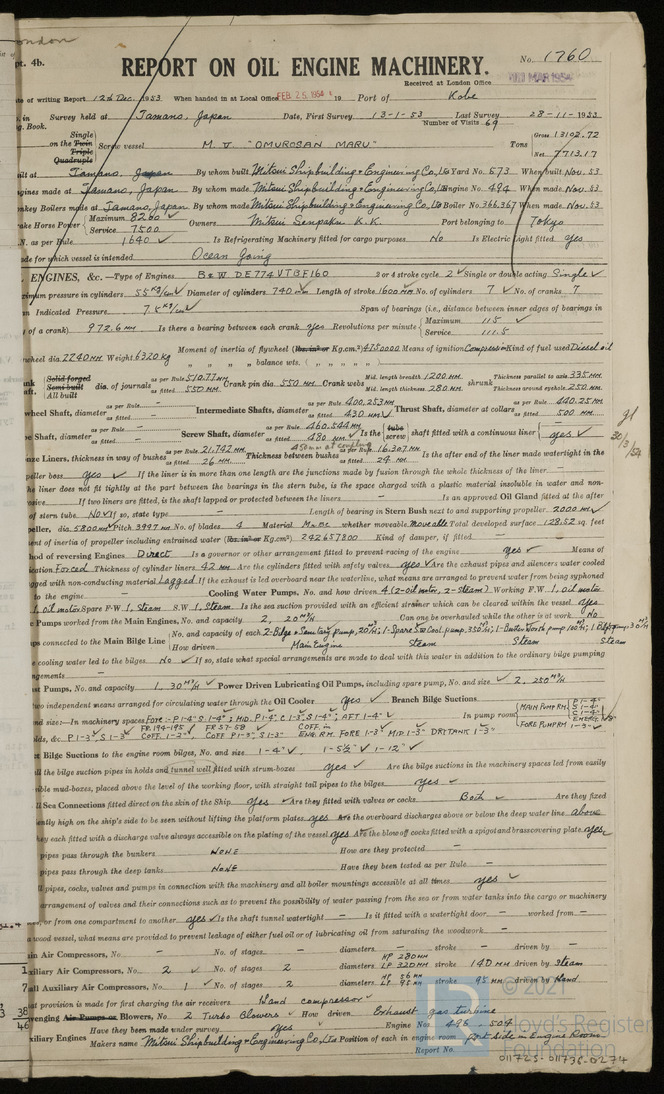 ondon
pt. 4b.
REPORT ON OIL ENGINE MACHINERY.
No. 1760
Received at London Office
MAR 1954
te of writing Report 12th Dec. 1953 When handed in at Local Office FEB 25 1954 19 Port of Kobe
in Survey held at Tamano, Japan Date, First Survey 13-1-53 Last Survey 28-11-1953
g. Book. Number of Visits 69
on the Single Twin Triple Quadruple Screw vessel M.V "OMUROSAN MARU" Tons Gross 13102.72 Net 7713.17
ilt at Tamano, Japan By whom built Mitsui Shipbuilding & Engineering Co, Ltd Yard No. 573 When built Nov. 53
gines made at Tamano, Japan By whom made Mitsui Shipbuilding & Engineering Co, Ltd Engine No. 494 When made Nov. 53
nkey Boilers made at Tamano, Japan By whom made Mitsui Shipbuilding & Engineering Co, Ltd Boiler No. 366.367 When made Nov. 53
rake Horse Power Maximum 8200 Service 7500 Owners Mitsui Senpaku K.K. Port belonging to Tokyo
N. as per Rule 1640 Is Refrigerating Machinery fitted for cargo purposes No Is Electric Light fitted yes
ade for which vessel is intended Ocean Going
ENGINES, &c.—Type of Engines B & W DE774VTBF160 2 or 4 stroke cycle 2 Single or double acting Single
ximum pressure in cylinders 55 Kg/cm² Diameter of cylinders 740 mm Length of stroke 1600 mm No. of cylinders 7 No. of cranks 7
an Indicated Pressure 7.5 Kg/cm² Span of bearings (i.e., distance between inner edges of bearings in
y of a crank) 972.6 mm Is there a bearing between each crank yes Revolutions per minute Maximum 115 Service 111.5
wheel dia 2240 mm Weight 6320 kg Moment of inertia of flywheel (lbs. in² or Kg. cm²) 4750000 Means of ignition Compression Kind of fuel used Diesel oil
" " " balance wts. ( " " " " )
nk aft, Solid forged Semi built All built dia. of journals as per Rule 510.77 mm as fitted 550 mm Crank pin dia. 550 mm Crank webs Mid. length breadth 1200 mm Mid. length thickness 280 mm shrunk Thickness parallel to axis 335 mm Thickness around eyehole 250 mm
wheel Shaft, diameter as per Rule - as fitted - Intermediate Shafts, diameter as per Rule 400.253 mm as fitted 430 mm Thrust Shaft, diameter at collars as per Rule 440.25 mm as fitted 500 mm
be Shaft, diameter as per Rule - as fitted - Screw Shaft, diameter as per Rule 460.544 mm as fitted 480 mm Is the tube screw shaft fitted with a continuous liner yes
450 mm at coupling
nze Liners, thickness in way of bushes as per Rule 21.742 mm as fitted 26 mm Thickness between bushes as per Rule 16.307 mm as fitted 24 mm Is the after end of the liner made watertight in the
peller boss yes If the liner is in more than one length are the junctions made by fusion through the whole thickness of the liner -
he liner does not fit tightly at the part between the bearings in the stern tube, is the space charged with a plastic material insoluble in water and non-
rosive - If two liners are fitted, is the shaft lapped or protected between the liners - Is an approved Oil Gland fitted at the after
of stern tube No If so, state type - Length of bearing in Stern Bush next to and supporting propeller 2000 mm
peller, dia. 5800 mm Pitch 3997 mm No. of blades 4 Material Mn.Bc whether moveable moveable Total developed surface 128.52 sq. feet
ent of inertia of propeller including entrained water (lbs. in² or Kg. cm²) 242657800 Kind of damper, if fitted -
hod of reversing Engines Direct Is a governor or other arrangement fitted to prevent racing of the engine yes Means of
ication Forced Thickness of cylinder liners 42 mm Are the cylinders fitted with safety valves yes Are the exhaust pipes and silencers water cooled
gged with non-conducting material Lagged If the exhaust is led overboard near the waterline, what means are arranged to prevent water from being syphoned
to the engine - Cooling Water Pumps, No. and how driven 4 (2-oil motor, 2-steam) Working F.W 1, Oil motor
1, oil motor Spare F.W 1, Steam S.W 1, Steam Is the sea suction provided with an efficient strainer which can be cleared within the vessel yes
e Pumps worked from the Main Engines, No. and capacity 2, 20 m³/H Can one be overhauled while the other is at work No
ps connected to the Main Bilge Line No. and capacity of each 2-Bilge & Sanitary pump, 20 m³/H; 1-Spare Sw Cool. pump, 350 m³/H; 1-Butterworth pump 100 m³/H; 1 Bilge pump 30 m³/H
How driven Main Engine Steam Steam Steam
e cooling water led to the bilges No If so, state what special arrangements are made to deal with this water in addition to the ordinary bilge pumping
ngements -
st Pumps, No. and capacity 1, 30 m³/H Power Driven Lubricating Oil Pumps, including spare pump, No. and size 2, 250 m³/H
two independent means arranged for circulating water through the Oil Cooler yes Branch Bilge Suctions
nd size:—In machinery spaces Fore:-P 1-4" S 1-4"; MID. P 1-4" C 1-3" S 1-4"; AFT 1-4" In pump room MAIN PUMP RM. FORE PUMP RM 1-3"
ds, &c. P 1-3", S 1-3" FR.194-195 COFF. 1-2", FR 57-58 COFF P 1-3", S 1-3" COFF. in ENG.RM. FORE 1-3" MID. 1-3" DR TANK 1-3"
ct Bilge Suctions to the engine room bilges, No. and size 1-4", 1-5½" 1-12"
all the bilge suction pipes in holds and tunnel well fitted with strum-boxes yes Are the bilge suctions in the machinery spaces led from easily
sible mud-boxes, placed above the level of the working floor, with straight tail pipes to the bilges yes
ll Sea Connections fitted direct on the skin of the Ship yes Are they fitted with valves or cocks Both Are they fixed
iently high on the ship's side to be seen without lifting the platform plates yes Are the overboard discharges above or below the deep water line above
hey each fitted with a discharge valve always accessible on the plating of the vessel yes Are the blow off cocks fitted with a spigot and brass covering plate yes
pipes pass through the bunkers NONE How are they protected -
pipes pass through the deep tanks NONE Have they been tested as per Rule -
ll pipes, cocks, valves and pumps in connection with the machinery and all boiler mountings accessible at all times yes
arrangement of valves and their connections such as to prevent the possibility of water passing from the sea or from water tanks into the cargo or machinery
es, or from one compartment to another yes Is the shaft tunnel watertight - Is it fitted with a watertight door - worked from -
a wood vessel, what means are provided to prevent leakage of either fuel oil or lubricating oil from saturating the woodwork -
ain Air Compressors, No. - No. of stages - diameters - stroke - driven by -
xiliary Air Compressors, No. 2 No. of stages 2 diameters HP 280 mm LP 320 mm stroke 140 mm driven by Steam
all Auxiliary Air Compressors, No. 1 No. of stages 2 diameters HP 56 mm LP 95 mm stroke 95 mm driven by Hand
at provision is made for first charging the air receivers Hand compressor
venging Air Pumps or Blowers, No. 2 Turbo Blowers How driven Exhaust gas turbine
xiliary Engines Have they been made under survey yes Engine Nos. 496, 504
Makers name Mitsui Shipbuilding & Engineering Co, Ltd Position of each in engine room port side in Engine Room
Report No.
30/3/54
© 2021
Lloyd's Register
Foundation
011725-011736-0274